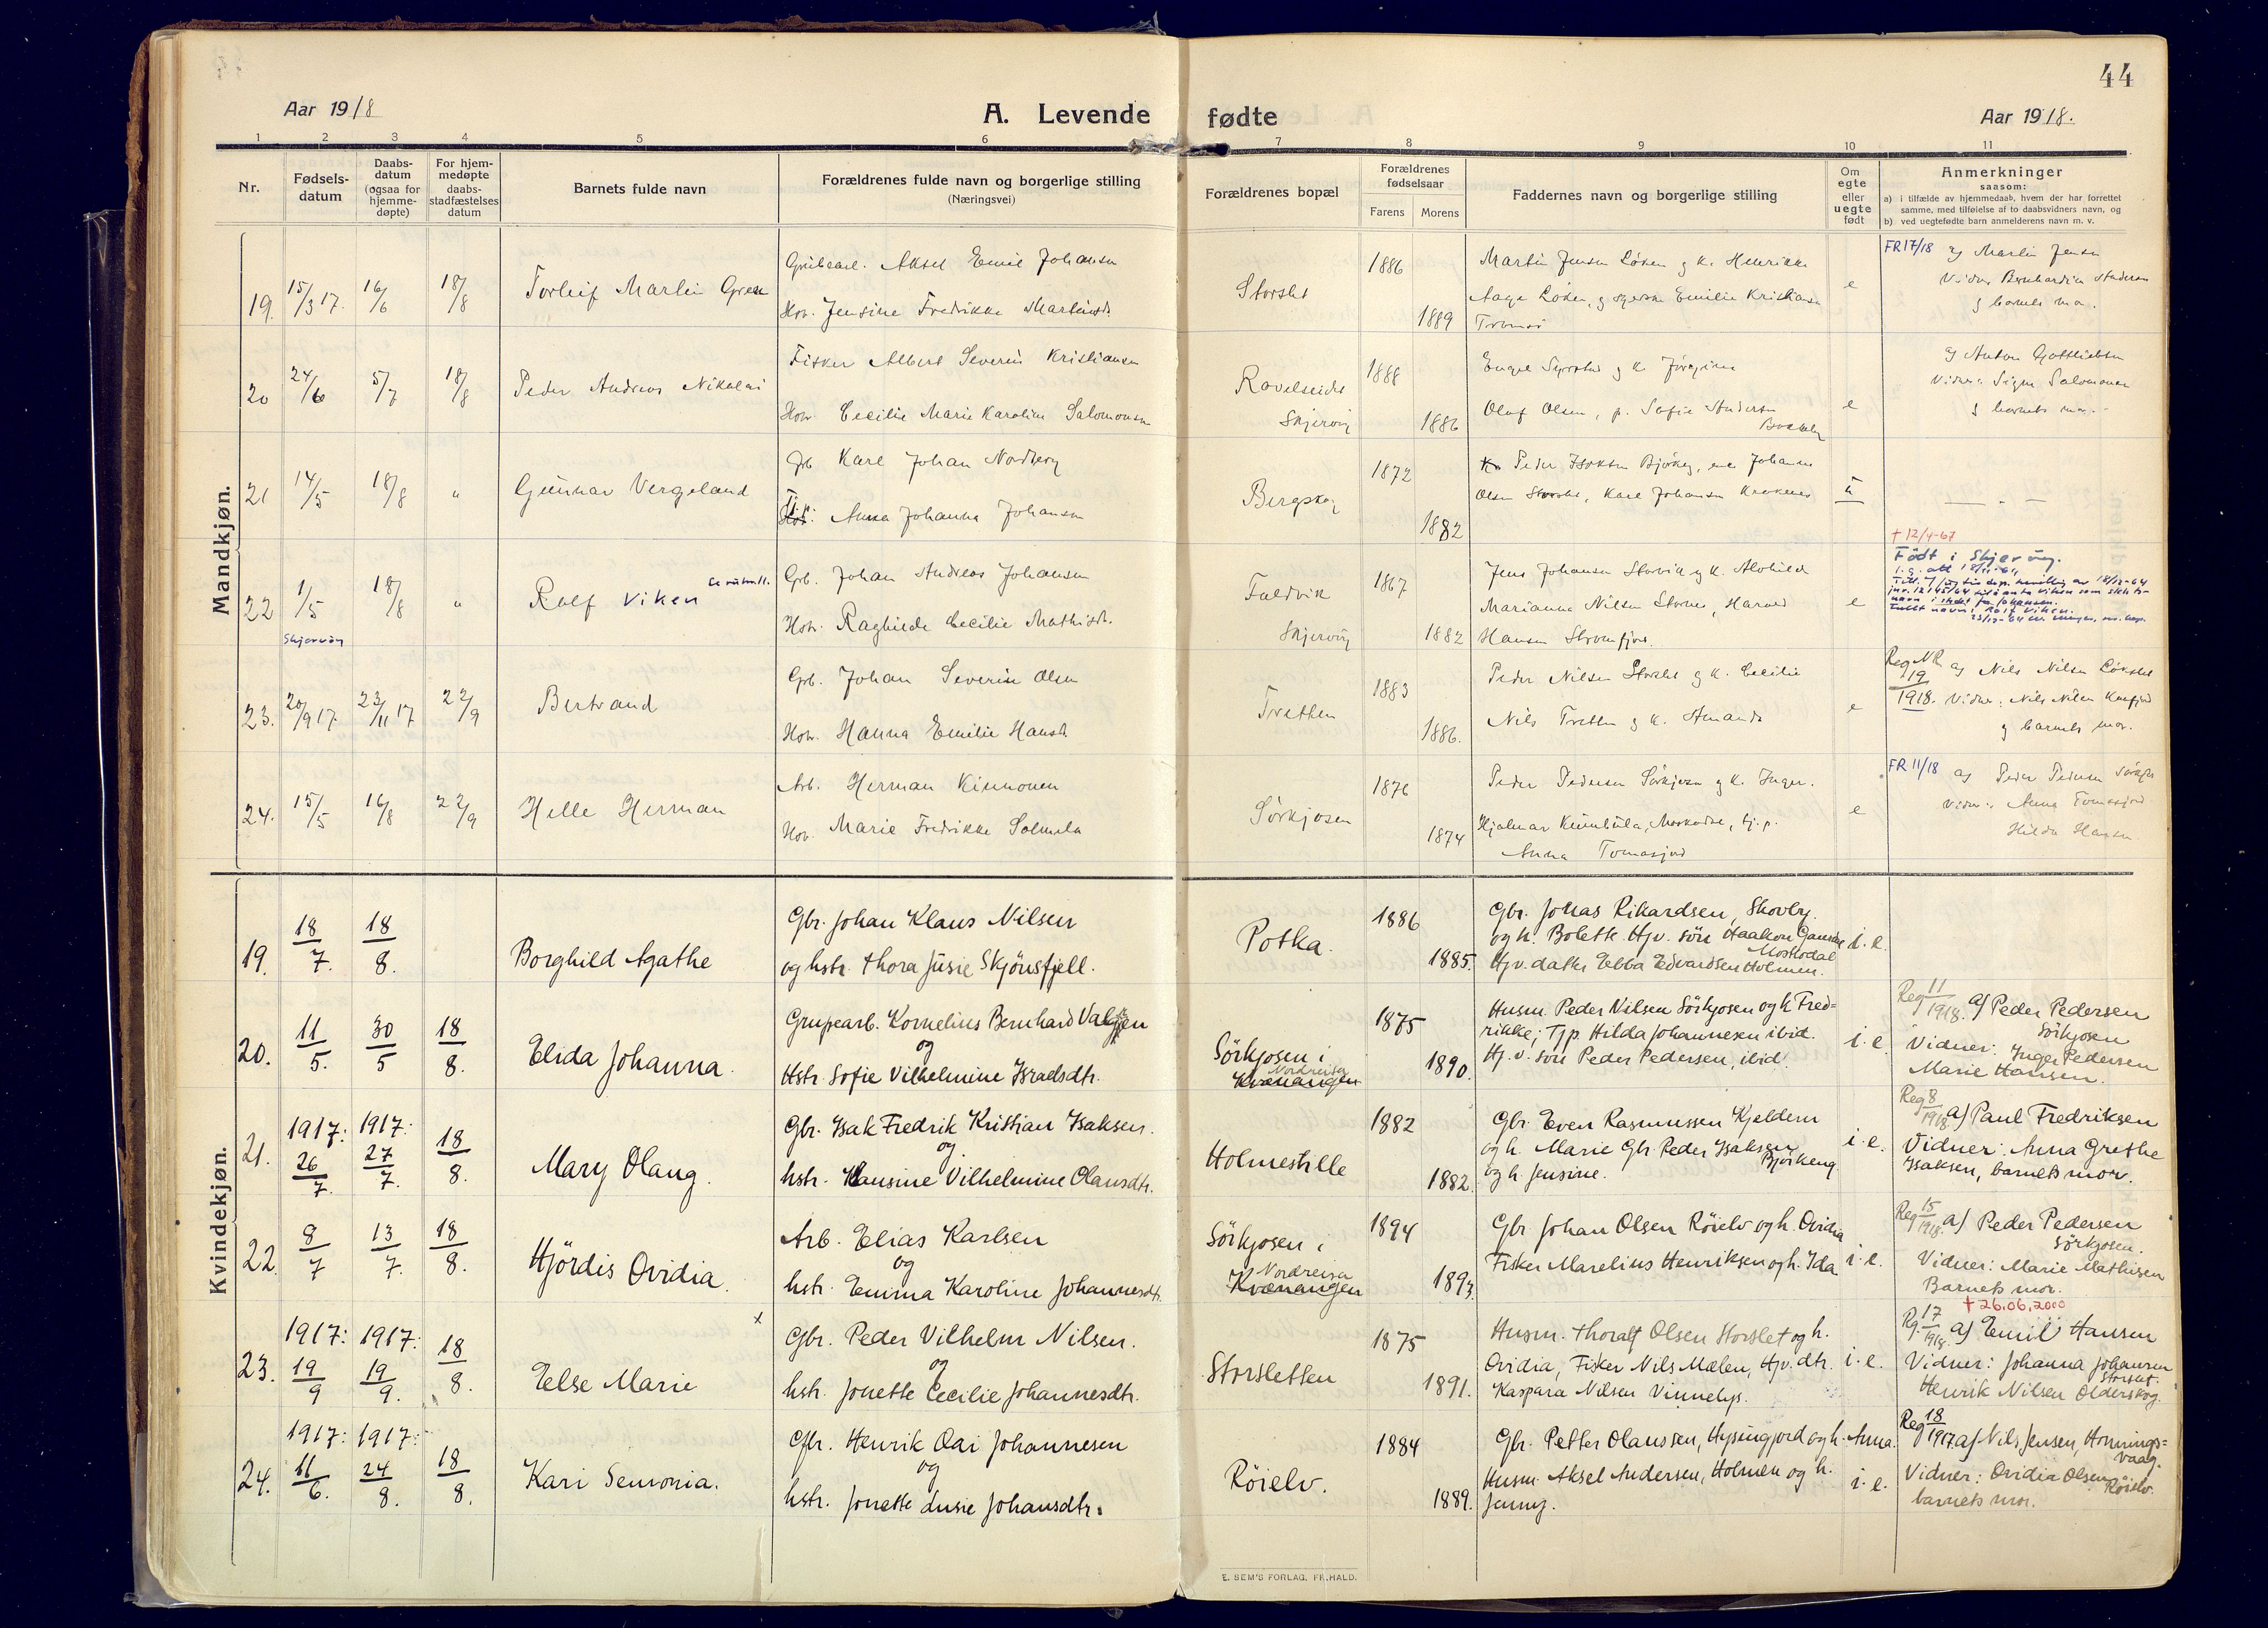 44
Aar 1918
A. Levende fødte
Aar 1918.
1 2 3 4 5 6 7 8 9 10 11
Nr.
Fødsels-
datum
Daabs-
datum
(ogsaa for
hjemme-
døpte)
For hjem-
medøpte
daabs-
stadfæstelses
datum
Barnets fulde navn
Forældrenes fulde navn og borgerlige stilling
(Næringsvei)
Forældrenes bopæl
Forældrenes
fødselsaar
Farens Morens
Faddernes navn og borgerlige stilling
Om
egte
eller
uegte
født
Anmerkninger
saasom:
a) i tilfælde av hjemmedaab, hvem der har forrettet
samme, med tilføielse af to daabsvidners navn, og
b) ved uegtefødte barn anmelderens navn m. v.
Mandkjøn.
19. 15/3 17. 16/6 18/8
Torleif Martin
Aksel Emil Johansen
Hstr. Jensine Fredrikke Martinsdt.
Storslet
1886
1889
Martin Jensen Løken g k. Henrikke
Aage Løken, Emilie Kristiansen
Tromsø
e
FR 17/18 a/ Martin Jensen
g barnets mor.
20 24/6 5/7 18/8
Peder Andreas Nikolai
Fisker Albert Severin Kristiansen
Hstr. Cecilie Marie Karoline Salomonsen
Ravelseidet
Skjervøy
1888
1886
Olaf Olsen, p. Sofie Andersen
e
a/ Anton Gottliebsen
Vidner: Signe Salomonsen
g barnets mor.
21 14/5 18/8 "
Gunnar Vergeland
Karl Johan Nordberg
Anna Johanna Johansen
Bergskog
1872
1882
Peder Isaksen Bjørkeng, Johannes
Olsen Storslet, Karl Johansen
u
22 1/5 18/8 "
Skjervøy
Rolf Viken
Grb. Johan Andreas Johansen
Hstr. Raghilde Cecilie Mathisdt.
Taldvik
Skjervøy
1867
1882
Jens Johansen Storvik g k. Alvhilde
Marianne Nilsen Stornes, Harald
Hansen Straumfjord.
e
+ 12/4-67
Født i Skjervøy.
23. 20/9 17. 23/11 17 22/9
Bertrand
Grb. Johan Severin Olsen
Hstr. Hanna Emilie Hansdt.
Tretten
1883
1886.
Peder Nilsen Storslet g k. Cecilie
Nils Tretten g k. Amanda
e
Reg NR 19/1918. a/ Nils Nilsen
Vidner: Nils Nilsen
g barnets mor.
24. 15/5 16/8 22/9
Helle Herman
Arb. Herman Kinnonen
Hstr. Marie Fredrikke Solmela
Sørkjosen
1876
1874
Peder Pedersen Sørkjosen g k. Inger.
Hjalmar
Anna Tomasjord
e
FR 11/18 a/ Peder Pedersen
Vidner: Anna Tomasjord
Hilda Hansen
Kvindekjøn.
19. 18/7. 18/8.
Borghild Agathe
Gbr. Johan Klaus Nilsen
og hstr. Thora Jusie Skjønsfjell.
Potka.
1886
1885.
Gbr. Johas Rikardsen, Skovby.
og h. Bolette. Hjv. søn Haakon
Moskodal
Hjv. datter Ebba Edvardsen Holmen.
i. e.
20. 11/5. 30/5 18/8.
Elida Johanna.
Grupearb. Kornelius Bernhard
og
Hstr. Sofie Vilhelmine Israelsdtr.
Sørkjosen i
Nordreisa
Kvænangen
1875
1890.
Husm. Peder Nilsen Sörkjosen og h. Fred=
rikke; Tjp. Hilda Johannesen ibid.
Hj. v. søn Peder Pedersen, ibid.
i. e.
Reg 11/1918. a/ Peder Pedersen
Sörkjosen
Vidner: Inger Pedersen
Marie Hansen.
21. 1917: 26/7. 1917: 27/7. 18/8.
Mary Olaug.
Gbr. Isak Fredrik Kristian Isaksen.
og
hstr. Hansine Vilhelmine Olausdtr.
Holmestille
1882
1882.
Gbr. Even Rasmussen Kjelderen
og h. Marie Gbr. Peder Isaksen
Bjørkeng
og h. Jensine.
i. e.
Reg 8/1918. a/ Paul Fredriksen
Vidner: Anna Grethe
Isaksen, barnets mor.
22. 8/7 13/7. 18/8.
Hjördis Ovidia.
Arb. Elias Karlsen
og
hstr. Emma Karoline Johannesdtr.
Sörkjosen i
Nordreisa
Kvænangen
1894
1893.
Gbr Johan Olsen Röielv og h. Ovidia
Fisker Marelius Henriksen og h. Ida
i. e.
Reg 15/1918. a/ Peder Pedersen
Sörkjosen.
Vidner: Marie Mathisen
Barnets mor.
23. 1917: 19/9 1917: 19/9. 18/8.
Else Marie
x
Gbr. Peder Vilhelm Nilsen.
og
hstr. Jonette Cecilie Johannesdtr.
Storsletten
1875
1891.
Husm. Thoralf Olsen Storslet og h.
Ovidia, Fisker Nils Mælen, Hjv. dtr.
Kaspara Nilsen Vinnelys.
i. e.
+ 26.06.2000
Rg. 17/1918. a/ Emil Hansen
Vidner: Johanna Johansen
Storslet.
Henrik Nilsen Olderskog.
24. 1917: 11/6. 1917: 24/8. 18/8.
Kari Senronia.
Gbr. Henrik Oai Johannesen
og
hstr. Jonette Lusie Johansdtr.
Röielv.
1884
1889.
Gbr. Petter Olaussen, Hysingjord og h. Anna.
Husm. Aksel Andersen, Holmen og h.
Jenny.
i. e.
Reg 18/1917. a/ Nils Jensen, Honnings=
vaag.
Vidner: Ovidia Olsen
Röielv.
barnets mor.
E. SEM'S FORLAG, FR.HALD.